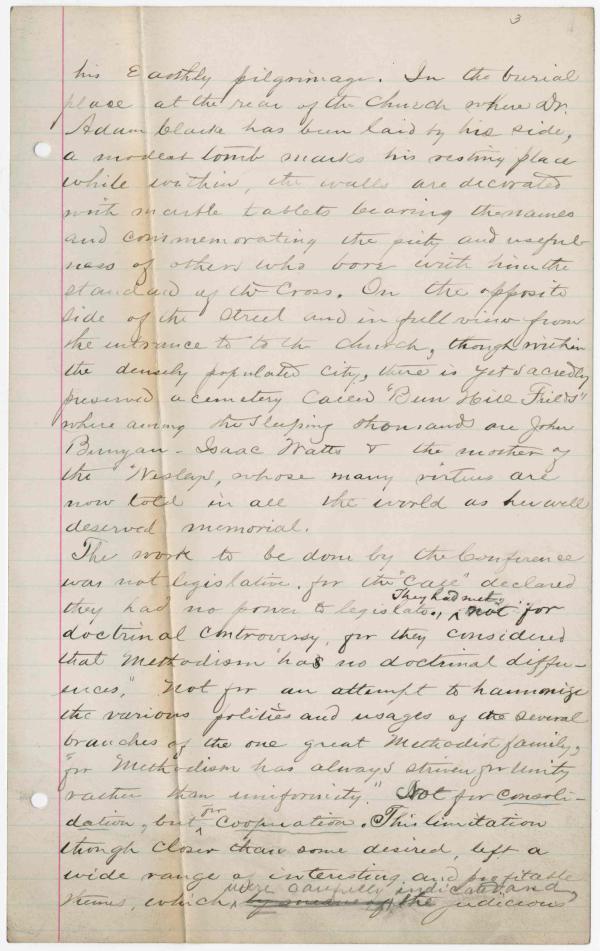 3
his Earthly pilgrimage. In the burial
place at the rear of the Church where Dr.
Adam Clarke has been laid by his side,
a modest tomb marks his resting place
while within, the walls are decorated
with marble tablets bearing the names
and commemorating the piety and useful-
ness of others who bore with him the
standard of the Cross. On the opposite
side of the street and in full view from
the entrance to to the church, though within
the densely populated city, there is yet sacredly
preserved a cemetery called "Bun Hill Fields"
where among the sleeping thousands are John
Bunyan - Isaac Watts & the mother of
the Wesleys, whose many virtues are
now told in all the world as her well
deserved memorial.
The work to be done by the Conference
was not legislative. for the "Call" declared
They had met
they had no power to legislate., not for
doctrinal controversy, for they considered
that Methodism "has no doctrinal differ-
ences," Not for an attempt to harmonize
the various polities and usages of the several
branches of the one great Methodist family,
"for Methodism has always striven for Unity
rather than uniformity." Not for consoli-
dation, but for Cooperation. This limitation
though closer than some desired, left a
wide range of interesting and profitable
were carefully indicated and
themes, which by means of the judicious